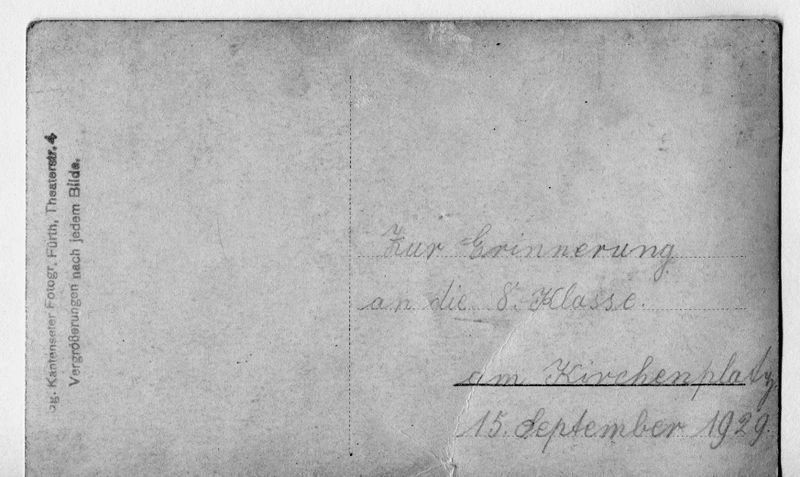 Kantenseter Fotogr. Fürth, Theaterstr. 4
Vergrößerungen nach jedem Bilde.
Zur Erinnerung
an die 8. Klasse.
am Kirchenplatz
15. September 1929.